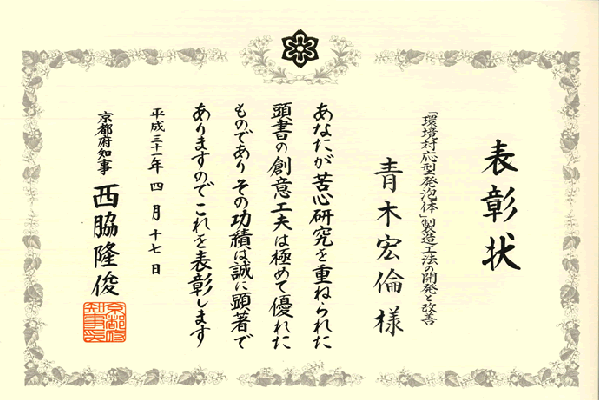 表彰状
「環境対応型発泡体」製造工法の開発と改善
青木宏倫様
あなたが苦心研究を重ねられた
頭書の創意工夫は極めて優れた
ものであり その功績は誠に顕著で
ありますのでこれを表彰します
平成三十一年四月十七日
京都府知事 西脇隆俊
京都府知事印